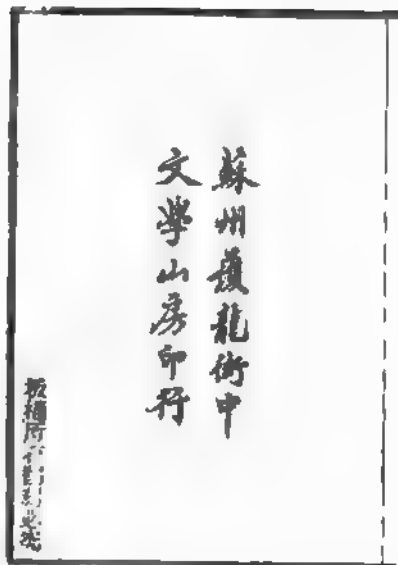 蘇州護龍街中
文學山房印行
板權所